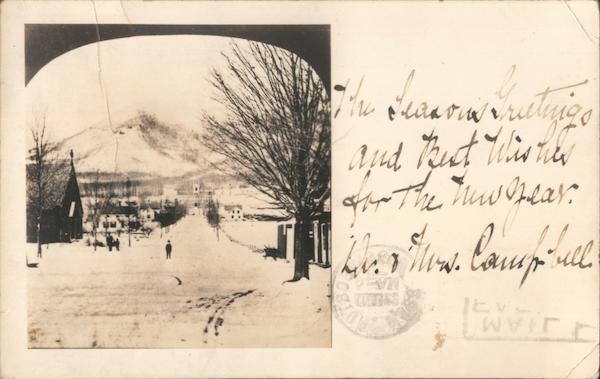 The Season's Greetings
and Best Wishes
for the New Year.
Dr. & Mrs. Campbell